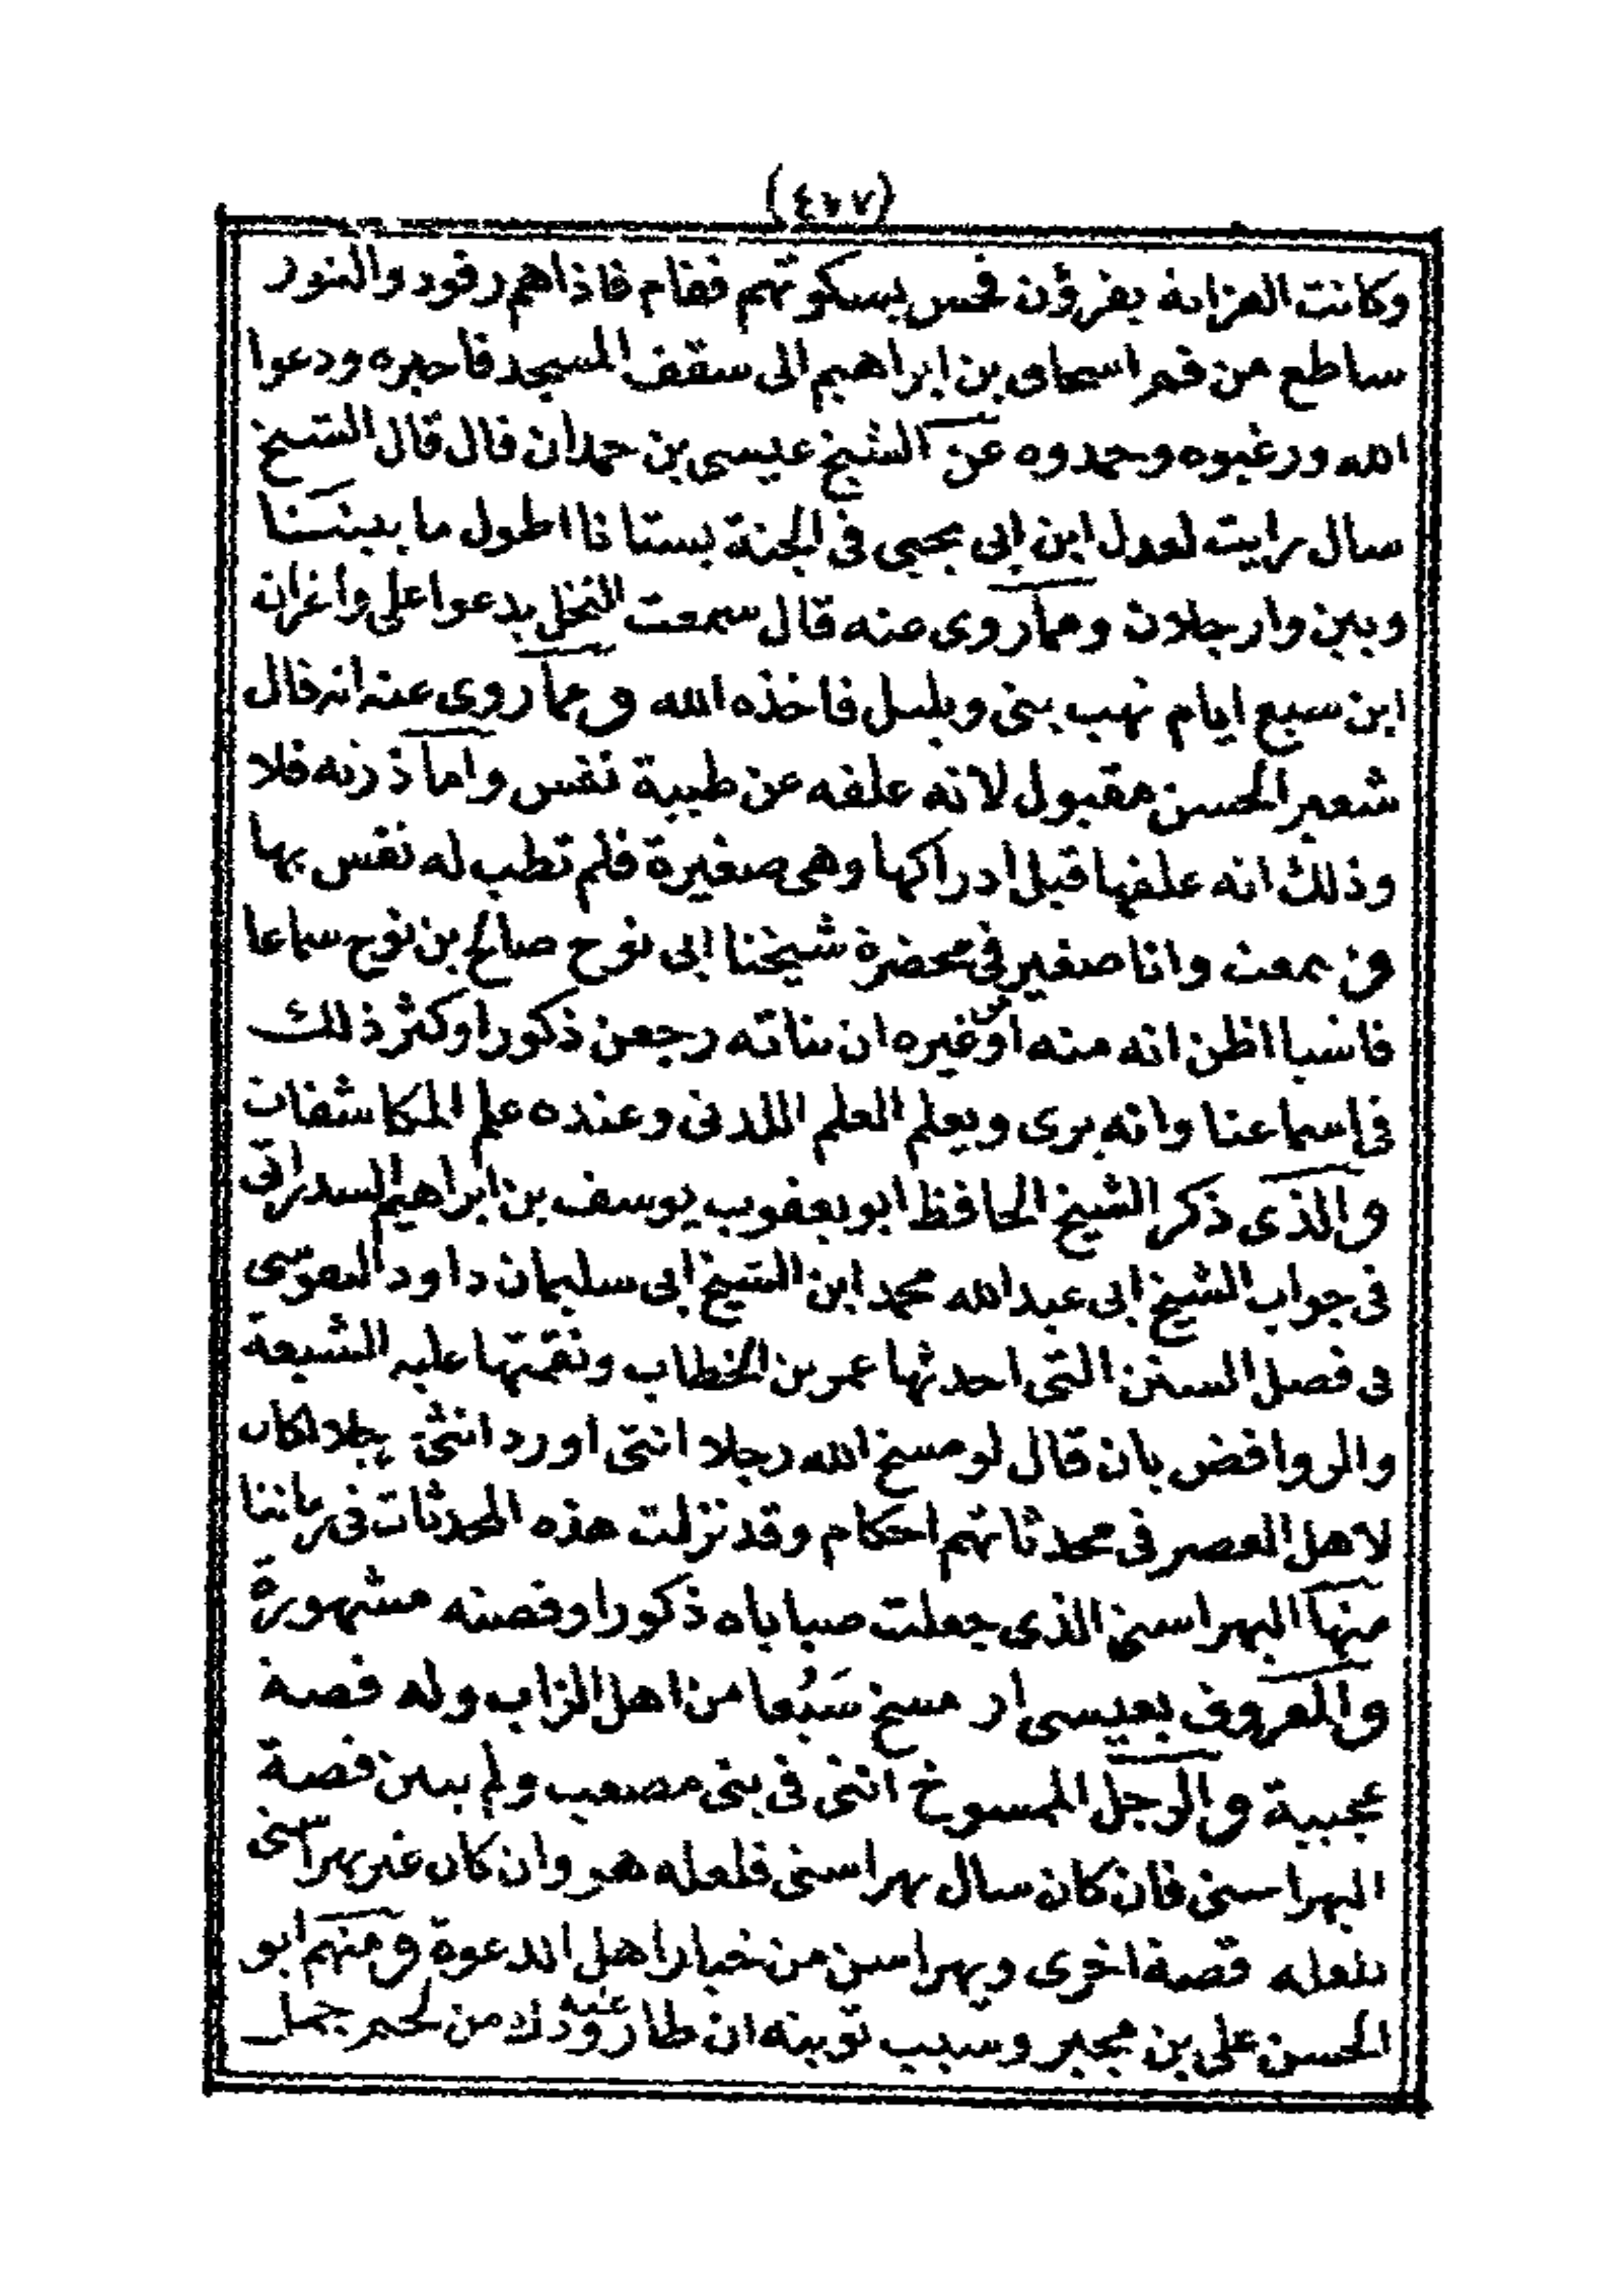 (٤٠٧)
وكانت العزابة يقرؤن فحس بسكوتهم فقام فاذا هم رقود والنور
ساطع من فم اسحاق بن ابراهيم الى سقف المسجد فاخبره ودعوا
الله ورغبوه وحمدوه عن الشيخ عيسى بن حمدان قال قال الشيخ
سال رايت لعدل ابن ابى يحيى فى الجنة بستانا اطول ما بيننا
وبين وارجلان ومما روى عنه قال سمعت النخل يدعوا على واغرانه
ابن سبع ايام نهب بنى ويليل فاخذه الله ومما روى عنه انه قال
شعير الحسن مقبول لانه علفه عن طيبة نفس واما ذرته فلا
وذلك انه علفها قبل ادراكها وهى صغيرة فلم تطب له نفس بها
وسمعت وانا صغير فى محضرة شيخنا ابى نوح صالح بن نوح سماعا
فاشيا اظن انه منه او غيره ان بناته رجعن ذكورا وكثر ذلك
فى اسماعنا وانه يرى ويعلم العلم اللدنى وعنده علم المكاشفات
والذى ذكر الشيخ الحافظ ابو يعقوب يوسف بن ابراهيم السدراتى
فى جواب الشيخ ابى عبد الله محمد ابن الشيخ ابى سليمان داود النفوسى
فى فصل السنن التى احدثها عمر بن الخطاب ونقمتها عليه الشيعة
والروافض بان قال لو مسخ الله رجلا انثى او رد انثى رجلا لكان
لاهل العصر فى محدثاتهم احكام وقد نزلت هذه المحدثات فى زماننا
منها البهراسنى الذى جعلت صباياه ذكورا وقصته مشهورة
والمعروف بعيسى ار مسخ سَبُعا من اهل الزاب وله قصة
عجيبة والرجل الممسوخ انثى فى بنى مصعب ولم يبين قصة
البهراسنى فان كان سال بهراسنى فلعله هو وان كان غير بهراسنى
فلعله قصة اخرى وبهراسن من خيار اهل الدعوة ومنهم ابو
الحسن على بن مجبر وسبب توبته ان طار عنه ودك من لحم جمل